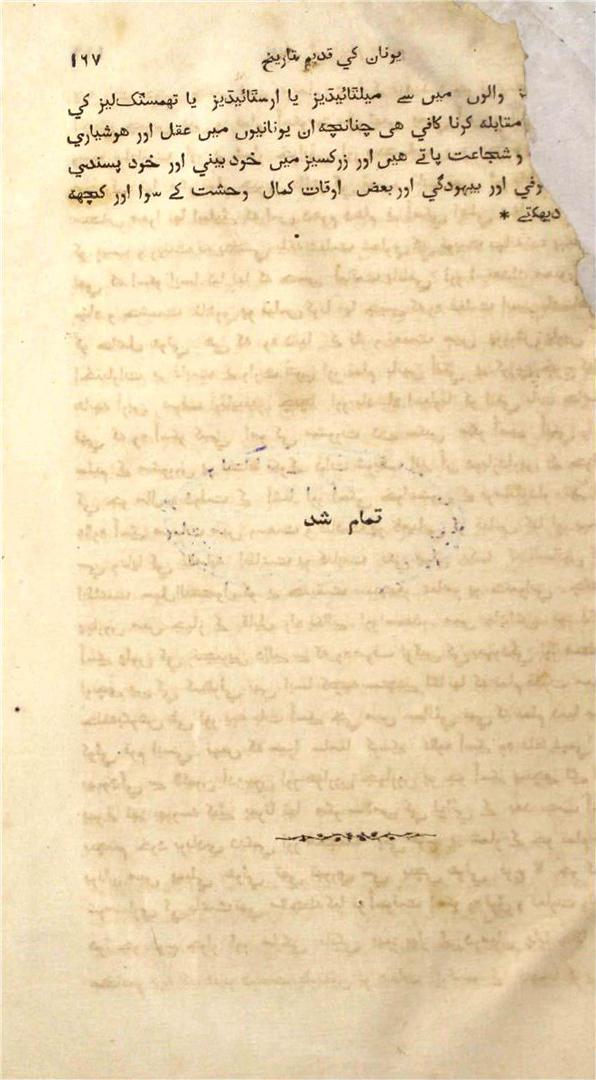 یونان کي قدیم تاریخ ۱٦۷
والوں میں سے میلٹائیڈیز یا ارسٹائیڈیز یا تھمسٹک لیز کي
مقابله کرنا کافي هی چنانچه ان یونانیوں میں عقل اور هوشیاري
و شجاعت پاتے هیں اور زرکسیز میں خود بیني اور خود پسندي
وفي اور بیہودگي اور بعض اوقات کمال وحشت کے سوا اور کچهه
دیکهتے *
تمام شد